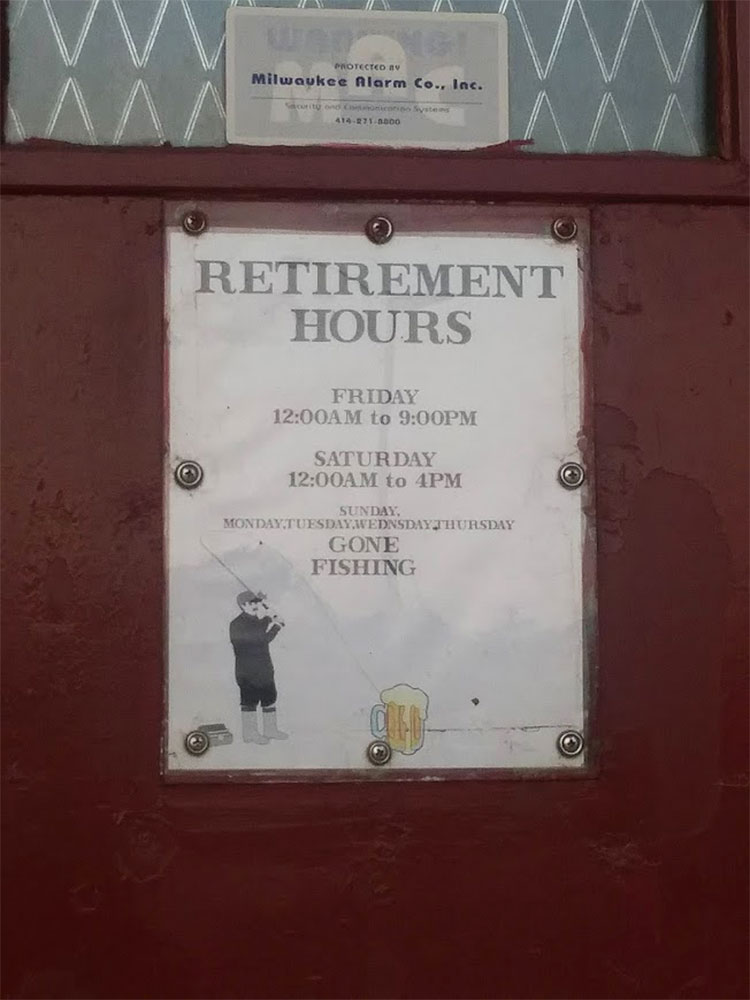 WARNING!
PROTECTED BY
Milwaukee Alarm Co., Inc.
Security and Communication Systems
414-271-8800
RETIREMENT
HOURS
FRIDAY
12:00AM to 9:00PM
SATURDAY
12:00AM to 4PM
SUNDAY,
MONDAY,TUESDAY,WEDNSDAY,THURSDAY
GONE
FISHING